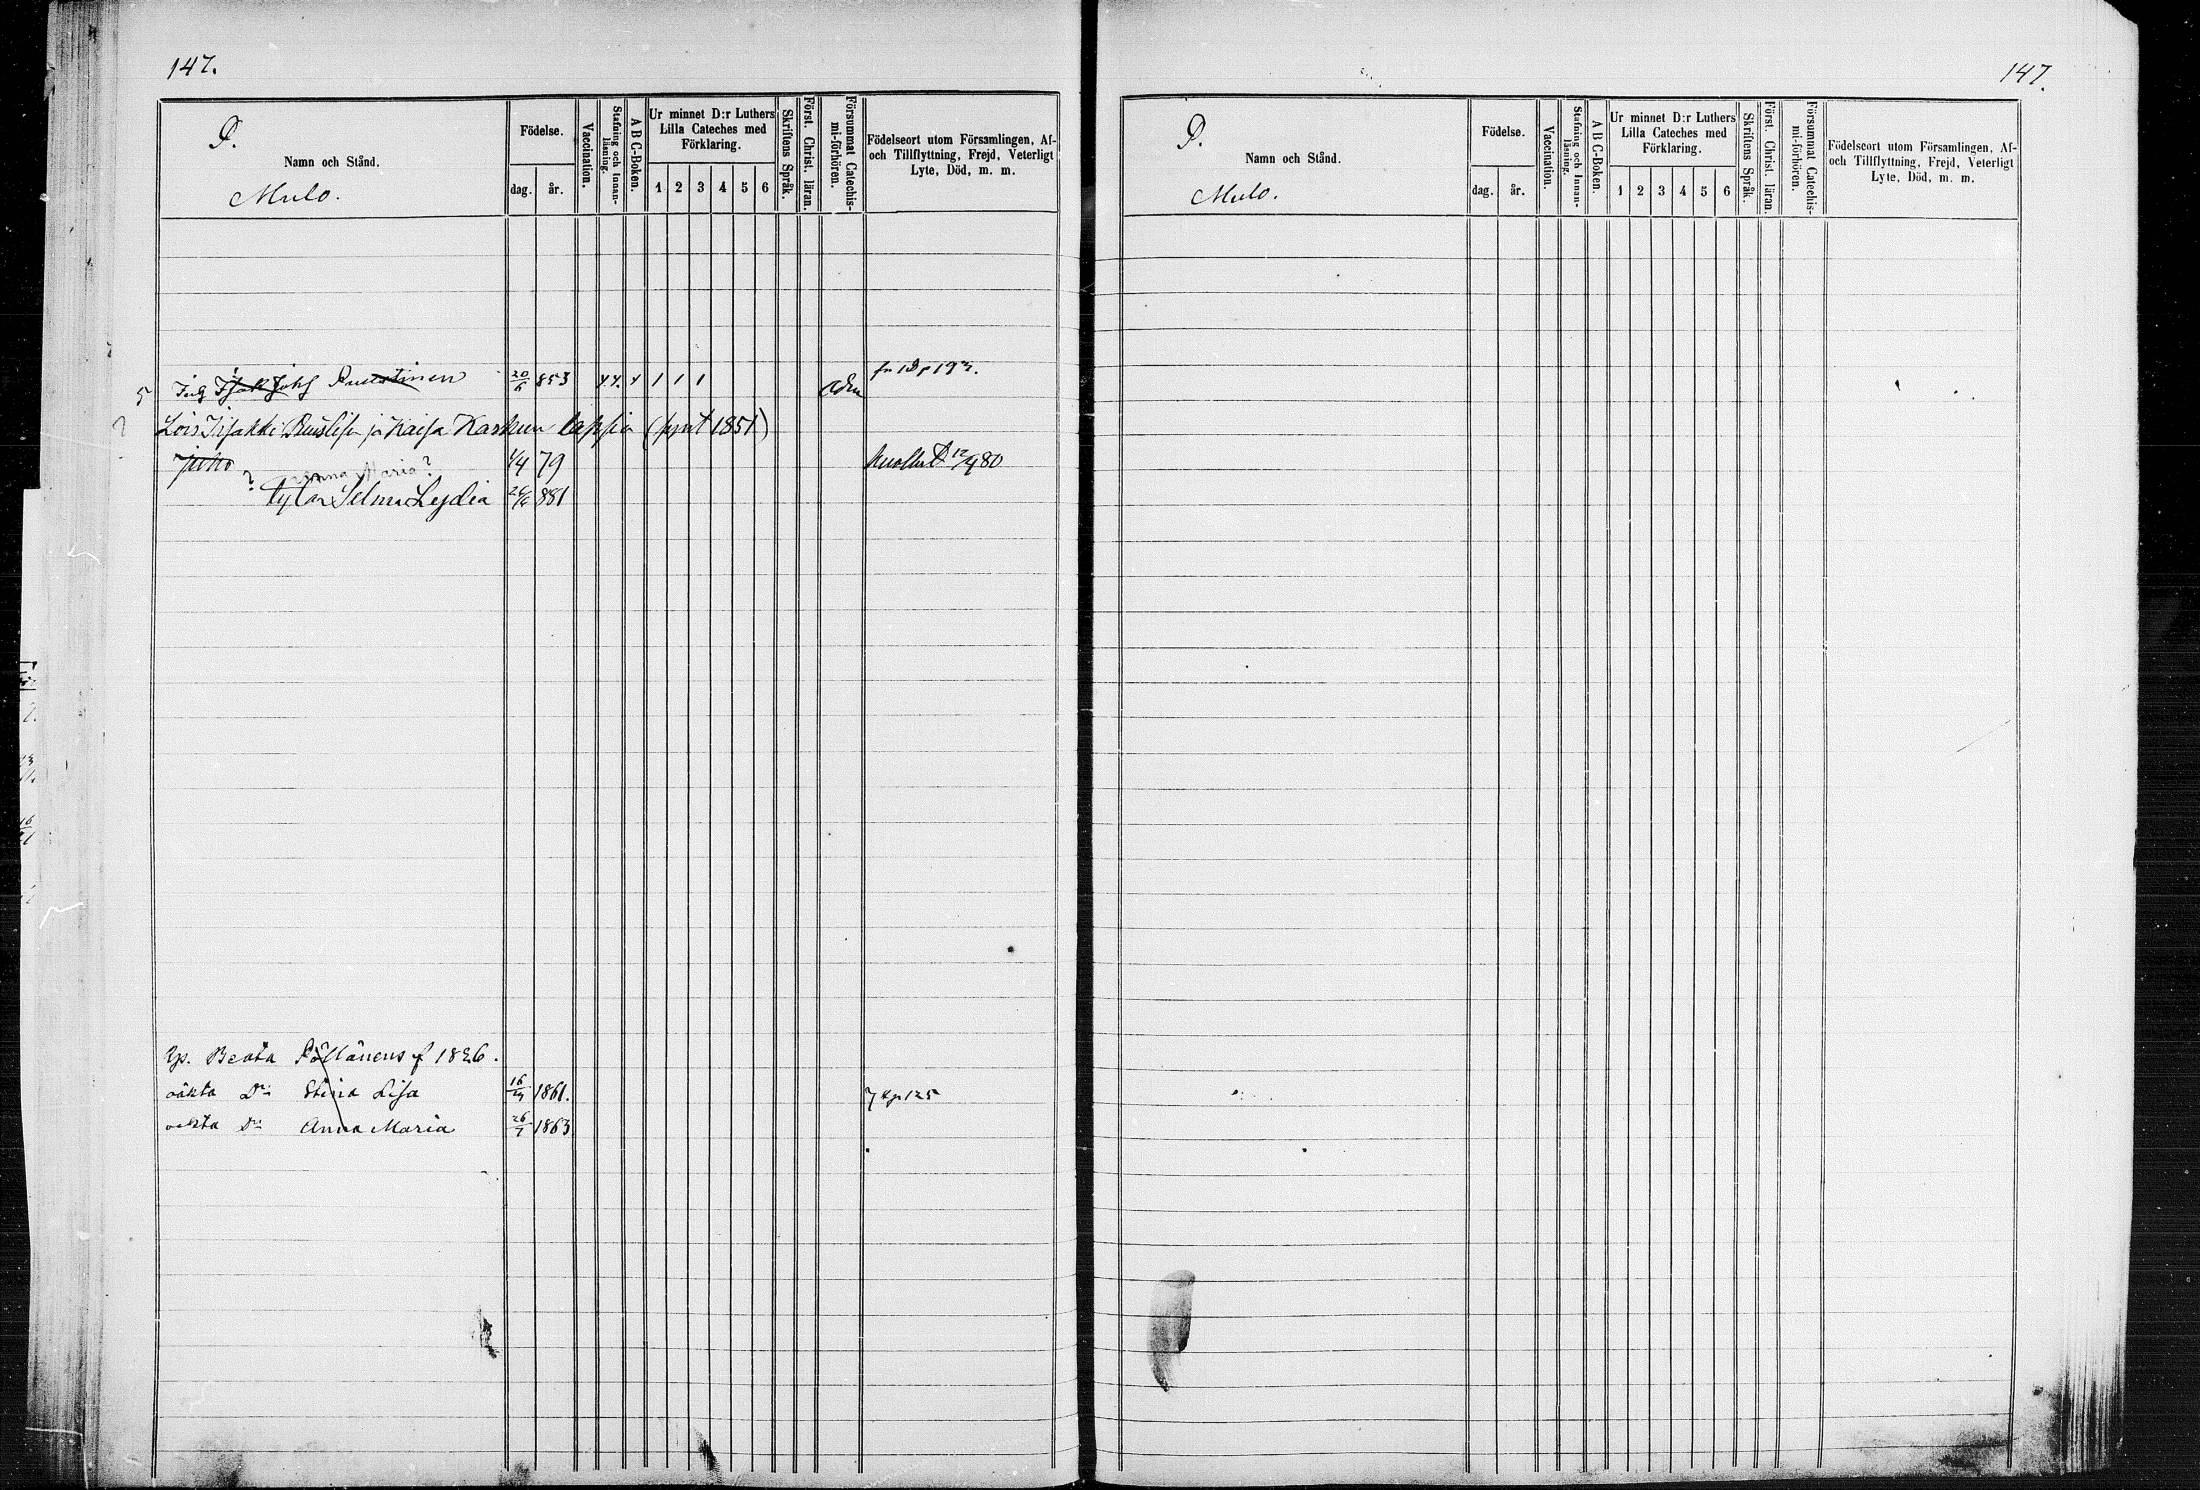 147.
P.
Namn och Stånd.
Mulo.
Födelse.
dag. år.
Vaccination.
Stafning och Innan-läsning.
A B C-Boken.
Ur minnet D:r Luthers Lilla Cateches med Förklaring.
1 2 3 4 5 6
Skriftens Språk.
Först. Christ. läran.
Försummat Catechis-mi-förhören.
Födelseort utom Församlingen, Af- och Tillflyttning, Frejd, Veterligt Lyte, Död, m. m.
5 Puustinen 20/6 853 1 1 1
Lois Isakki Puust: ja Kaisa lapsia (synt 1851)
Juho 1/4 79 kuollut 12/4 80
? Anna Maria?
tytär Selma Lydia 881
Beata Pöllänens f 1826.
oäkta Dr: Stina Lisa 16/4 1861. 7 kp 125
oäkta Dr: Anna Maria 26/7 1863
147.
P.
Namn och Stånd.
Mulo.
Födelse.
dag. år.
Vaccination.
Stafning och Innan-läsning.
A B C-Boken.
Ur minnet D:r Luthers Lilla Cateches med Förklaring.
1 2 3 4 5 6
Skriftens Språk.
Först. Christ. läran.
Försummat Catechis-mi-förhören.
Födelseort utom Församlingen, Af- och Tillflyttning, Frejd, Veterligt Lyte, Död, m. m.